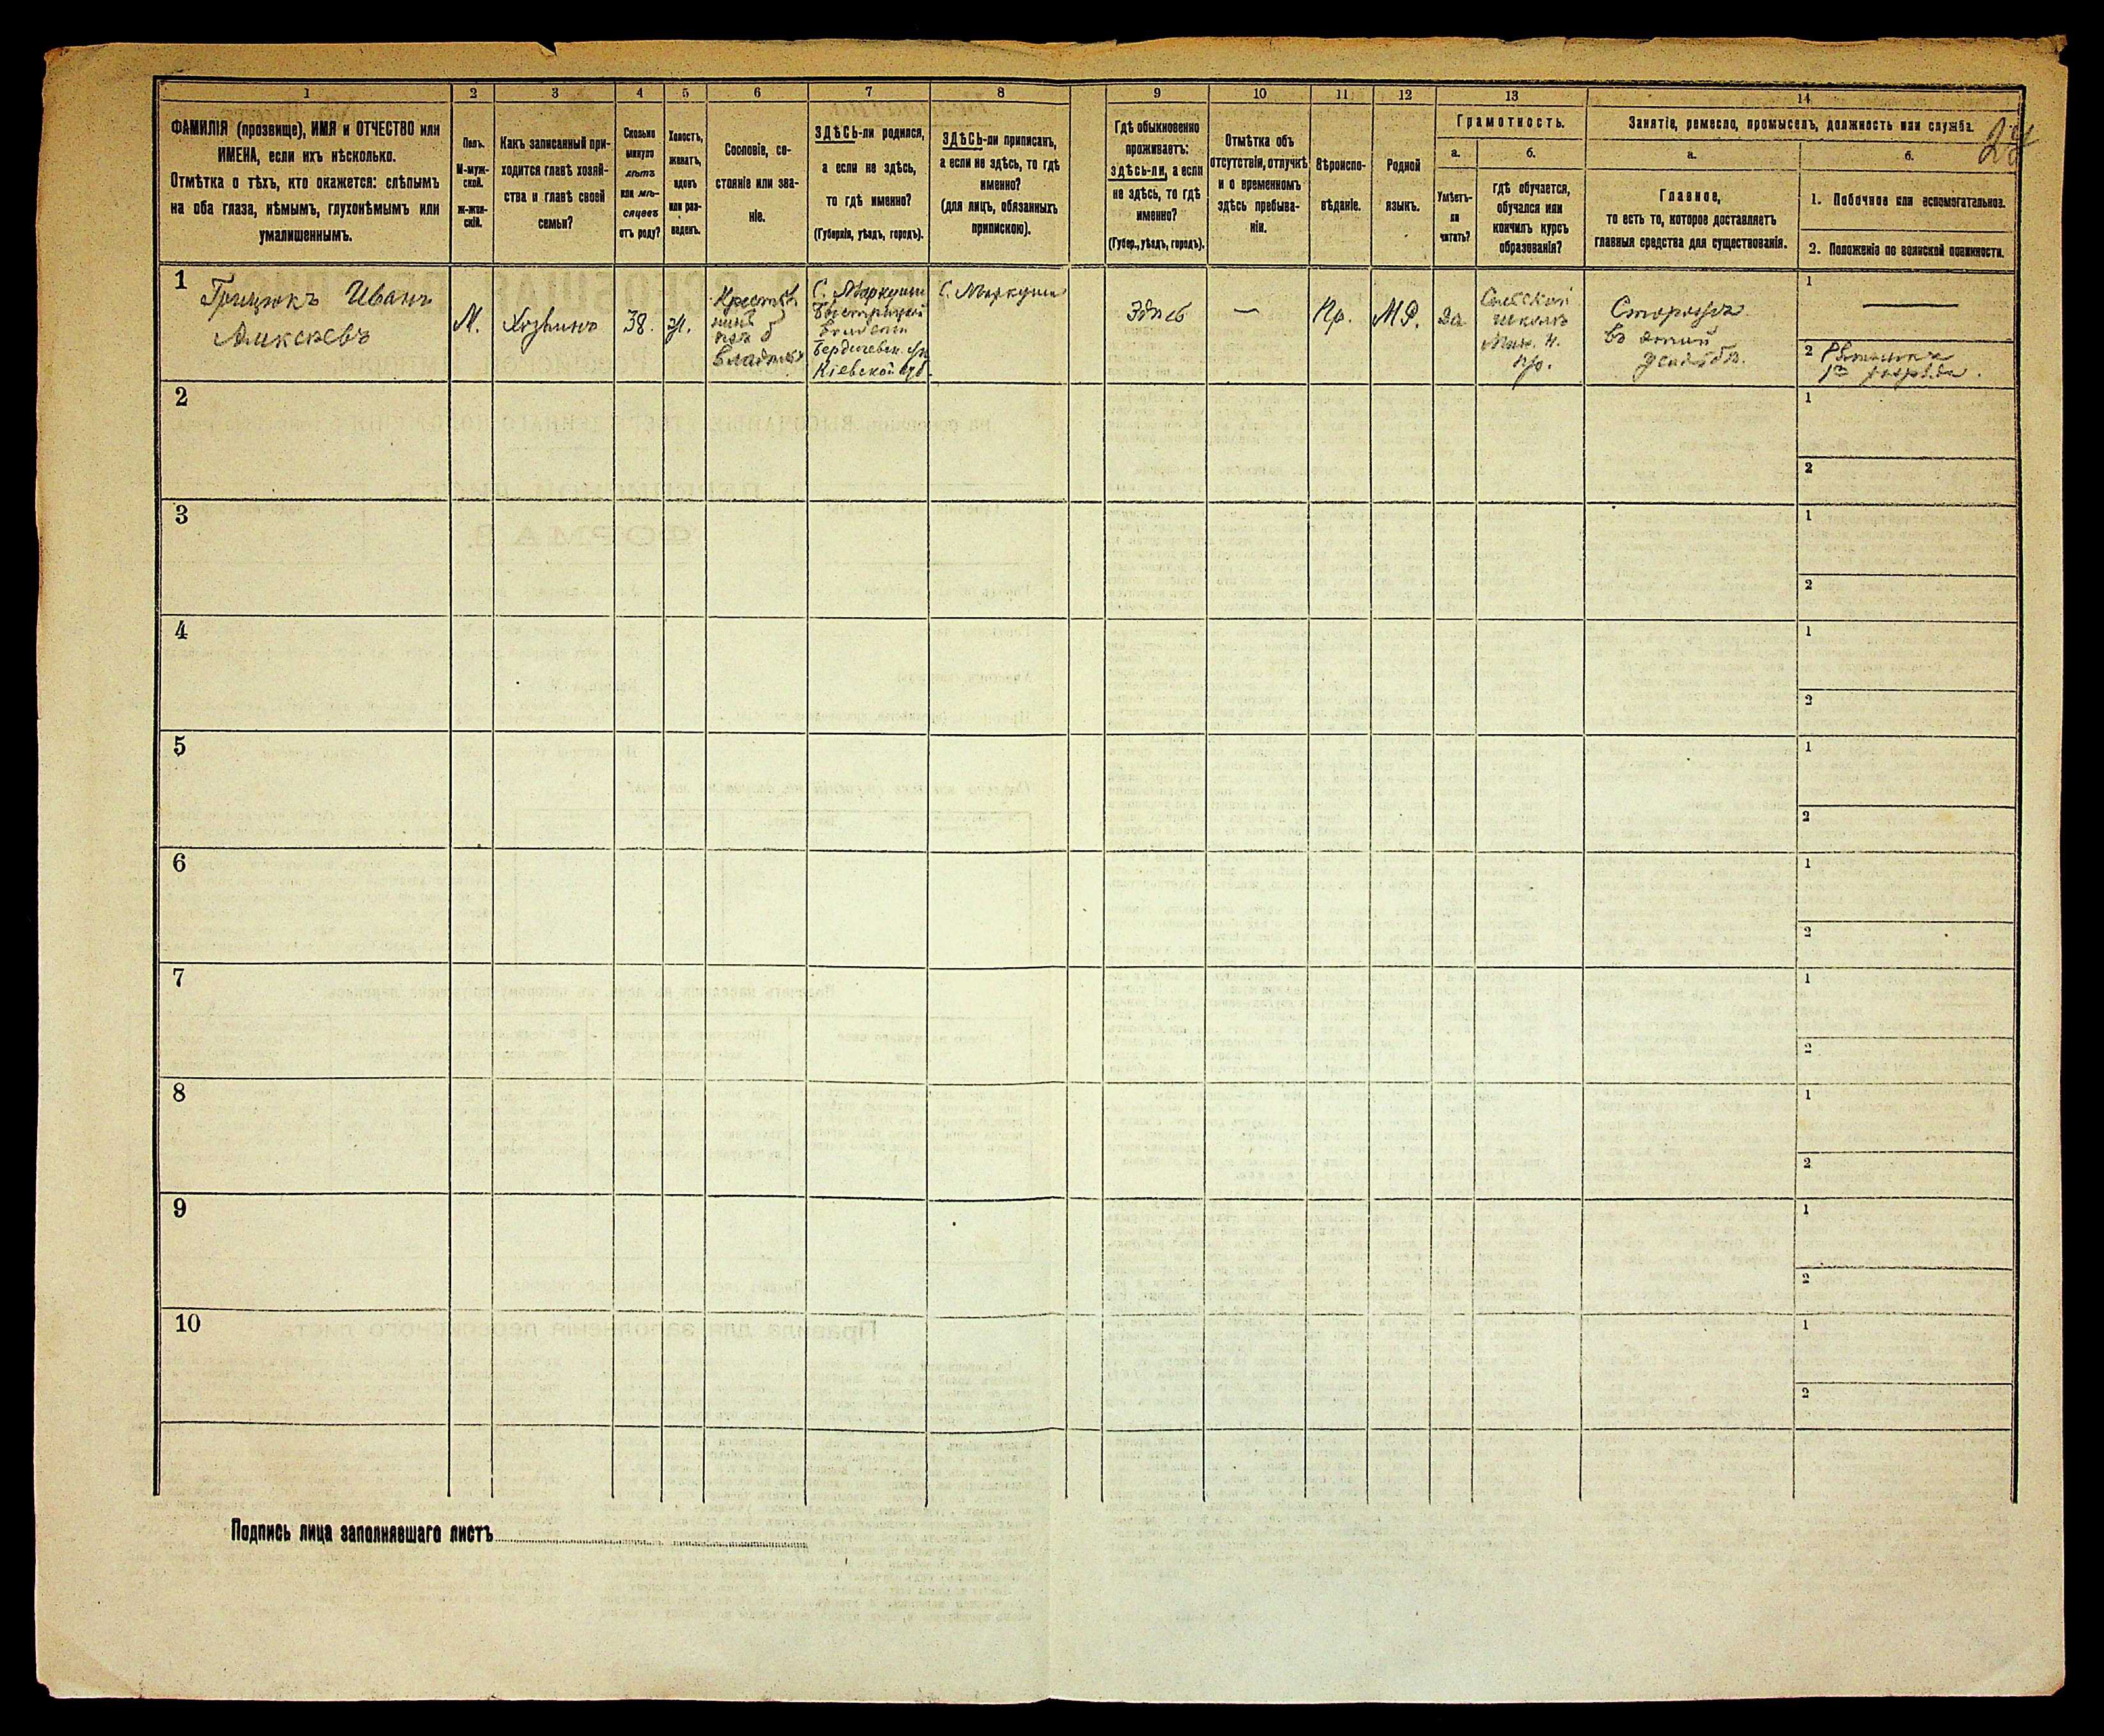 1 2 3 4 5 6 7 8 9 10 11 12 13 14
ФАМИЛІЯ (прозвище), ИМЯ и ОТЧЕСТВО или
ИМЕНА, если ихъ нѣсколько.
Отмѣтка о тѣхъ, кто окажется: слѣпымъ
на оба глаза, нѣмымъ, глухонѣмымъ или
умалишеннымъ.
Полъ.
М-муж-
ской.
Ж-жен-
скій.
Какъ записанный при-
ходится главѣ хозяй-
ства и главѣ своей
семьи?
Сколько
минуло
лѣтъ
или мѣ-
сяцевъ
отъ роду?
Холостъ,
женатъ,
вдовъ
или раз-
веденъ.
Сословіе, со-
стояніе или зва-
ніе.
ЗДѢСЬ-ли родился,
а если не здѣсь,
то гдѣ именно?
(Губернія, уѣздъ, городъ).
ЗДѢСЬ-ли приписанъ,
а если не здѣсь, то гдѣ
именно?
(для лицъ, обязанныхъ
припискою).
Гдѣ обыкновенно
проживаетъ:
здѣсь-ли, а если
не здѣсь, то гдѣ
именно?
(Губер., уѣздъ, городъ).
Отмѣтка объ
отсутствіи, отлучкѣ
и о временномъ
здѣсь пребыва-
ніи.
Вѣроиспо-
вѣданіе.
Родной
языкъ.
Грамотность.
а.
Умѣетъ-
ли
читать?
б.
гдѣ обучается,
обучался или
кончилъ курсъ
образованія?
Занятіе, ремесло, промыселъ, должность или служба.
а.
Главное,
то есть то, которое доставляетъ
главныя средства для существованія.
б.
1. Побочное или вспомогательное.
2. Положеніе по воинской повинности.
1
Грицюкъ Иванъ
Алексѣевъ
М.
Хозяинъ
38.
ж.
Крестья
нинъ
изъ б
владѣл
С. Маркуши
волости
Бердичевск. уѣз
Кіевской губ.
С. Маркуши
Здѣсь
—
Пр.
М.Р.
Да
Сельской
школѣ
Мин. Н.
Пр.
Сторожъ
въ этой
усадьбѣ.
1 —
2 Ратникъ
1го разряда.
2
1
2
3
1
2
4
1
2
5
1
2
6
1
2
7
1
2
8
1
2
9
1
2
10
1
2
Подпись лица заполнявшаго листъ